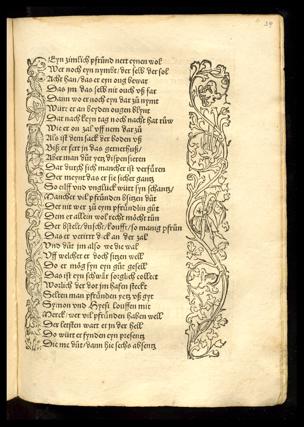 Eyn zimlich pfrůnd nert eynen wol
Wer noch eyn nymbt / der selb der sol
Acht han / das er eyn oug bewar
Das im das selb nit ouch vß far
Dann wo er noch eyn dar zů nymt
Würt er an beyden ougen blynt
Dar nach keyn tag noch nacht hat růw
Wie er on zal vff nem dar zů
Als ist dem sack der boden vß
Biß er fert in das gernerhuß /
Aber man důt yetz dispensieren
Dar durch sich mancher ist verfüren
Der meynt das er sie sicher gantz
So eilff vnd vnglück würt syn schantz /
Mancher vil pfrůnden bsitzen důt
Der nit wer zů eym pfründlin gůt
Dem er allein wol recht möcht tůn
Der bstelt / duscht / koufft / so manig pfrůn
Das er verirrt dick an der zal
Vnd důt im also we die wal
Vff welcher er doch sitzen well
Do er mög syn eyn gůt gesell
Das ist eyn schwär sorglich collect
Worlich der dot im hafen steckt
Selten man pfrůnden yetz vß gyt
Symon vnd Hyesi louffen mit
Merck / wer vil pfrůnden haben well
Der letsten wart er in der hell
Do würt er fynden eyn presentz
Die me důt / dann hie sechs absentz